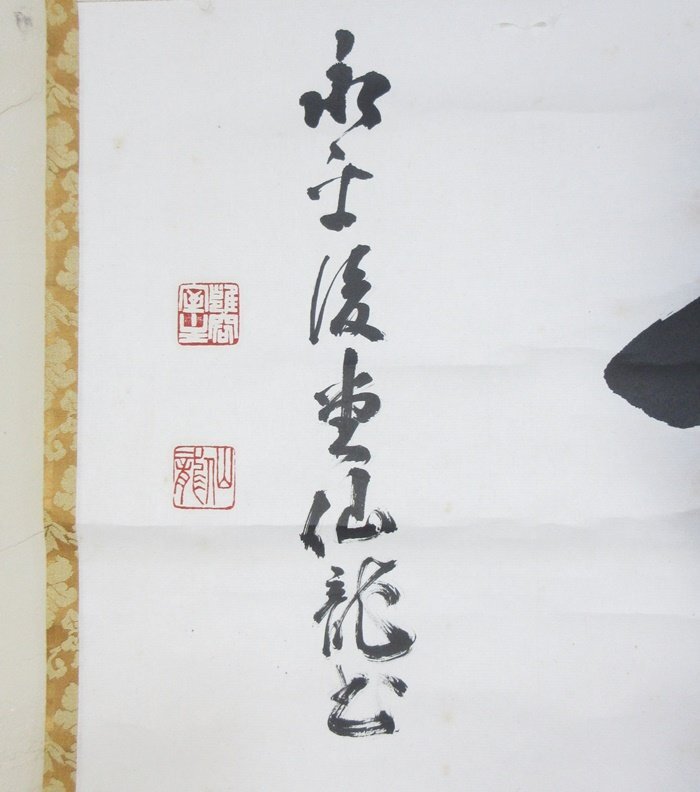 永平後堂仙龍書
仙龍